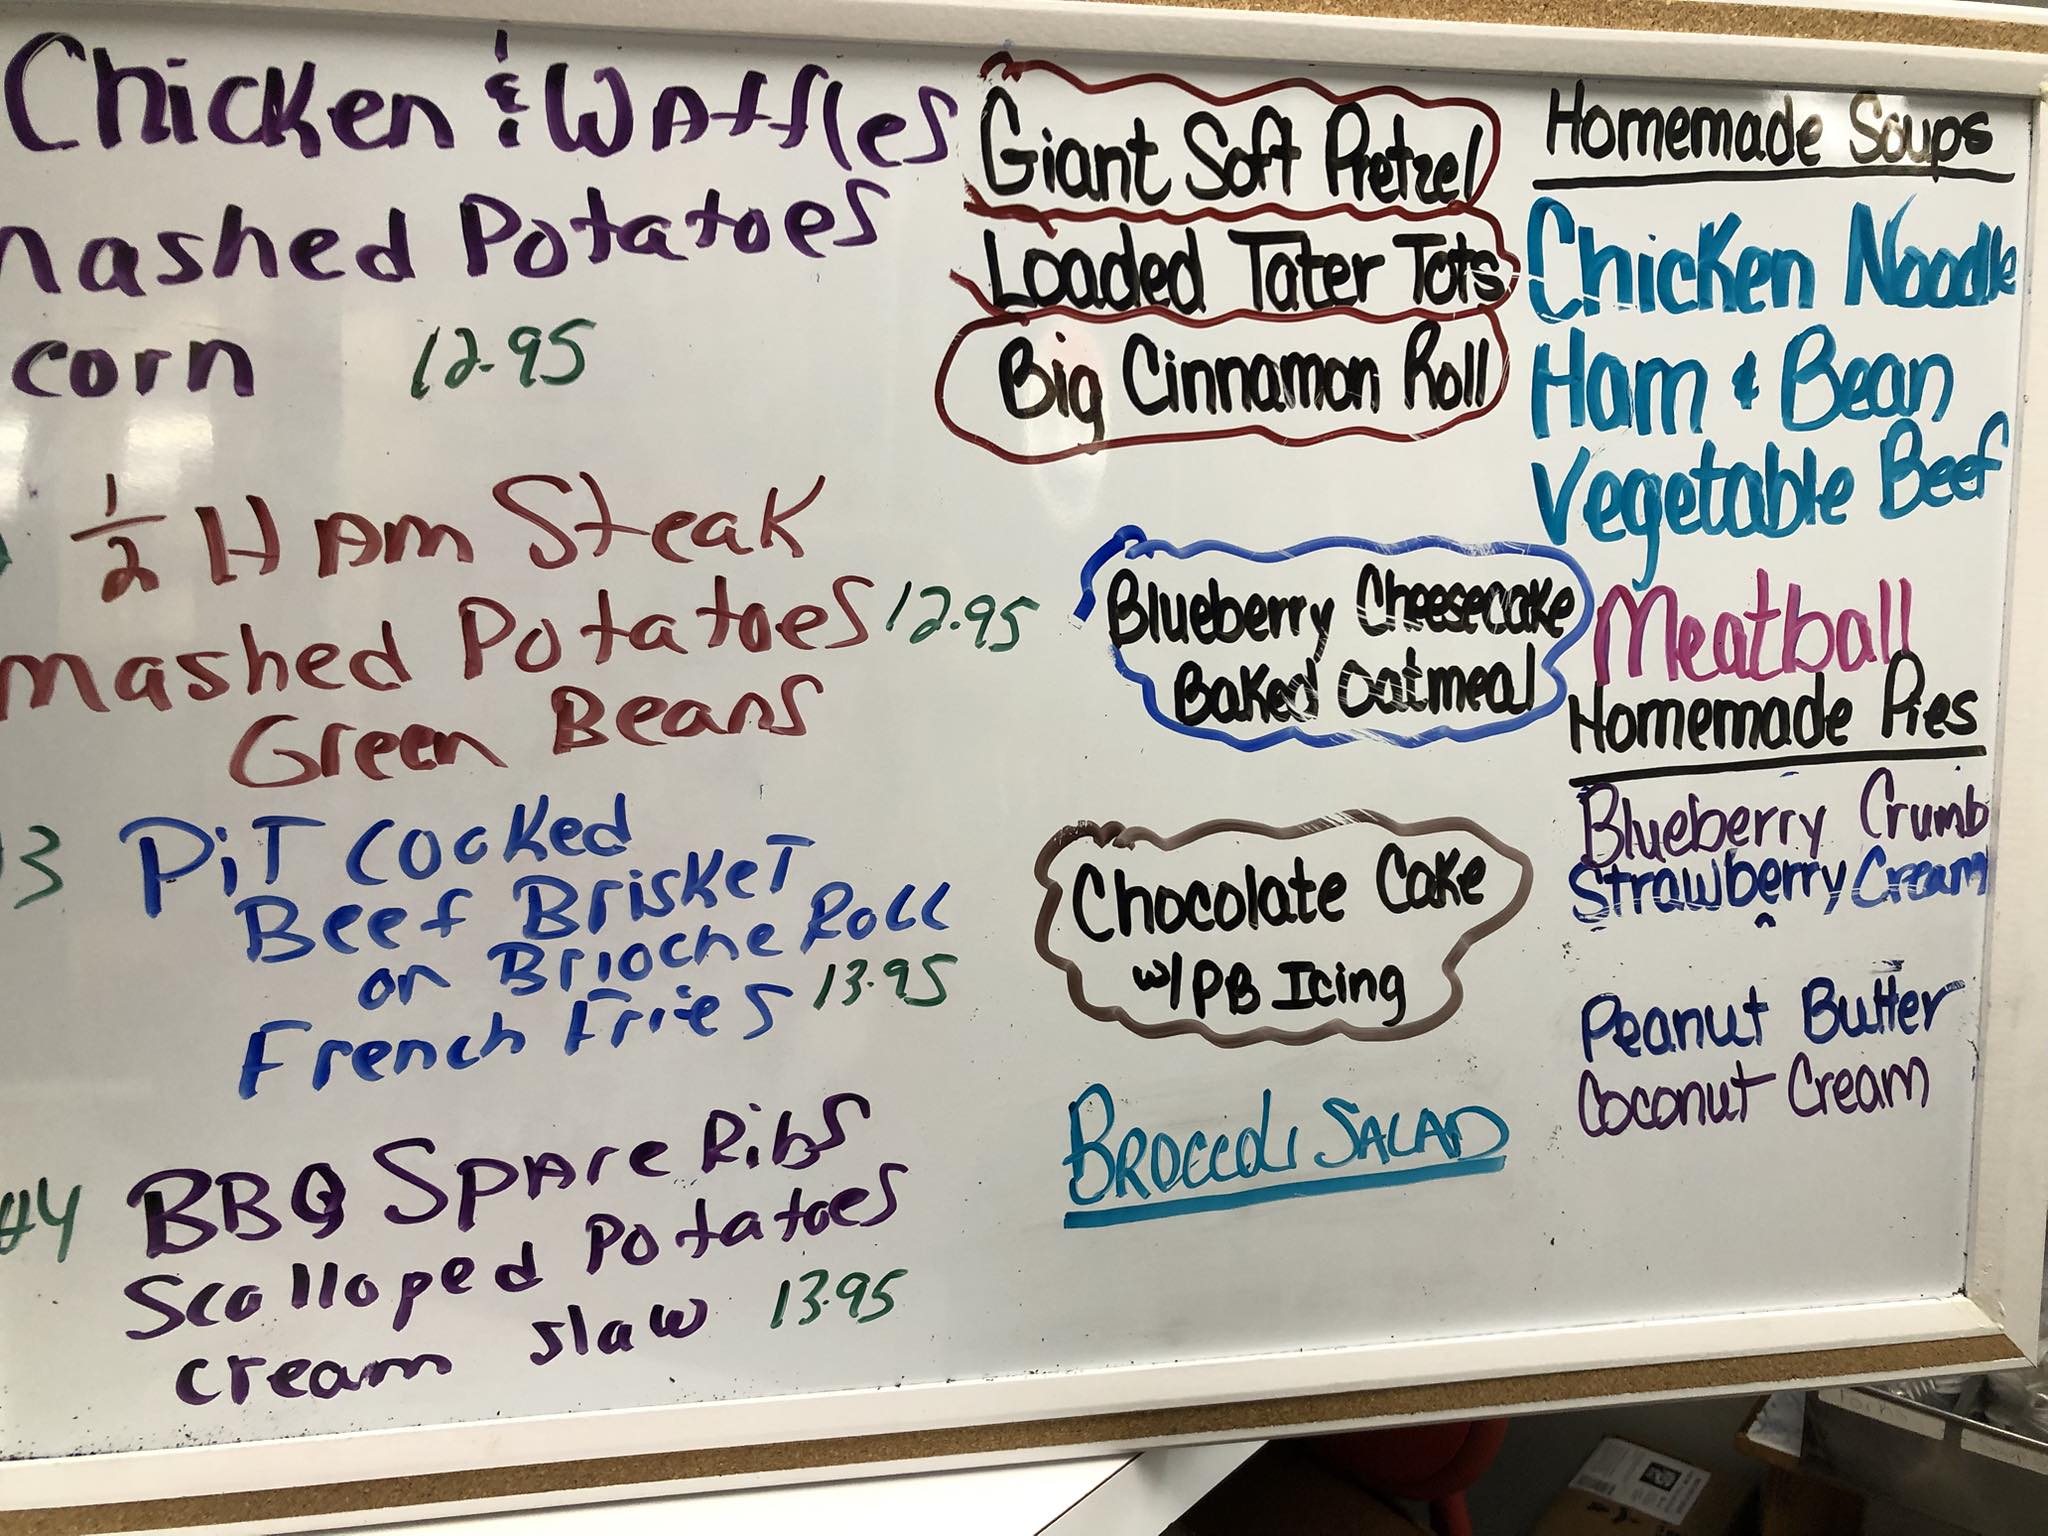 Chicken & Waffles
mashed Potatoes
corn 12.95
1/2 HAm Steak
mashed Potatoes 12.95
Green Beans
3 PiT Cooked
Beef BrisKeT
on Brioche Roll
French Fries 13.95
#4 BBQ SpAre Ribs
Scalloped Potatoes
cream slaw 13.95
Giant Soft Pretzel
Loaded Tater Tots
Big Cinnamon Roll
Blueberry Cheesecake
Baked Oatmeal
Chocolate Cake
w/ PB Icing
BROCCOLi SALAD
Homemade Soups
Chicken Noodle
Ham & Bean
Vegetable Beef
Meatball
Homemade Pies
Blueberry Crumb
Strawberry Cream
Peanut Butter
Coconut Cream